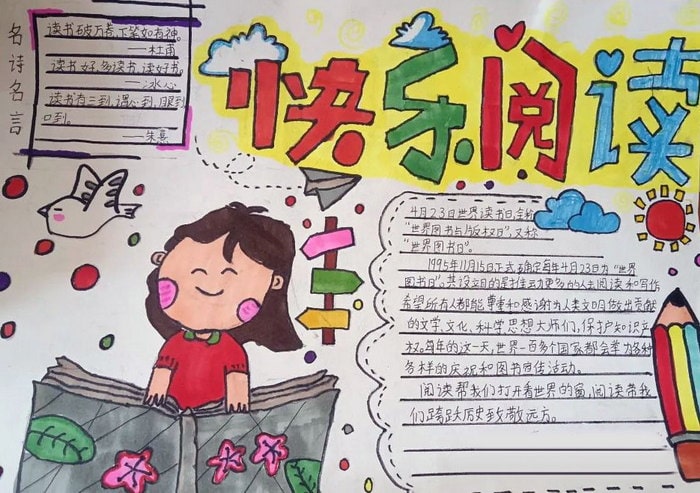 快乐阅读
名诗名言
读书破万卷,下笔如有神。
——杜甫
读书好,多读书,读好书。
——冰心
读书有三到,谓心到,眼到
口到。
——朱熹
4月23日世界读书日全称
"世界图书与版权日",又称
"世界图书日"。
1995年11月15日正式确定每年4月23日为"世界
图书日",其设立目的是推动更多的人去阅读和写作
希望所有人都能尊重和感谢为人类文明做出贡献
的文学、文化、科学思想大师们,保护知识产
权。每年的这一天,世界一百多个国家都会举办各种
各样的庆祝和图书宣传活动。
阅读帮我们打开看世界的窗,阅读带我
们跨跃历史致敬远方。